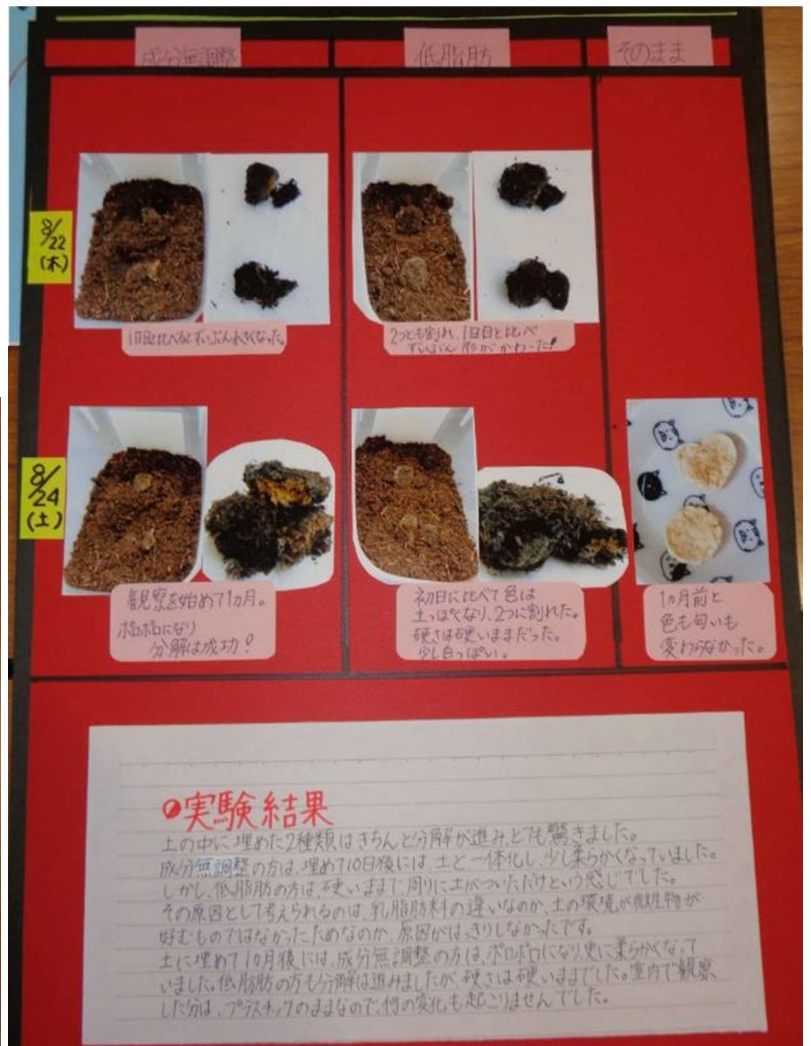 成分無調整
低脂肪
そのまま
8/22
(木)
1日目と比べるとずいぶん小さくなった。
2つとも割れ、1日目と比べ
ずいぶん形がかわった!
8/24
(土)
観察を始めて1ヵ月。
ボロボロになり
分解は成功!
初日に比べて色は
土っぽくなり、2つに割れた。
硬さは硬いままだった。
少し白っぽい。
1ヵ月前と
色も匂いも
変わらなかった。
実験結果
土の中に埋めた2種類はきちんと分解が進み、とても驚きました。
成分無調整の方は、埋めて10日後には、土と一体化し、少し柔らかくなっていました。
しかし、低脂肪の方は、硬いままで、周りに土がついただけという感じでした。
その原因として考えられるのは、乳脂肪料の違いなのか、土の環境が微生物が
好むものではなかったためなのか、原因がはっきりしなかったです。
土に埋めて1ヵ月後には、成分無調整の方は、ボロボロになり、更に柔らかくなって
いました。低脂肪の方も分解は進みましたが、硬さは硬いままでした。室内で観察
した分は、プラスチックのままなので、何の変化も起こりませんでした。